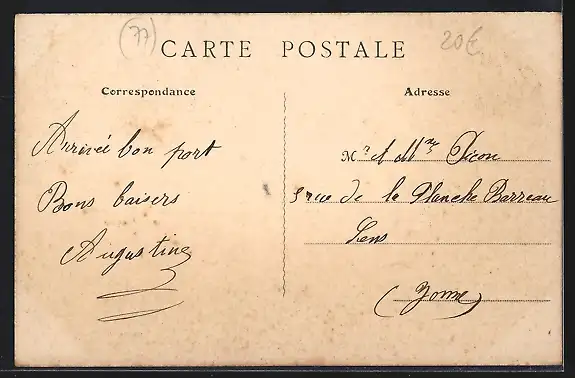 (77)
20€
CARTE POSTALE
Correspondance
Adresse
Arrivée bon port
Bons baisers
Augustine
Mr et Mme Picon
5 rue de la Planche Barreau
Sens
(Yonne)